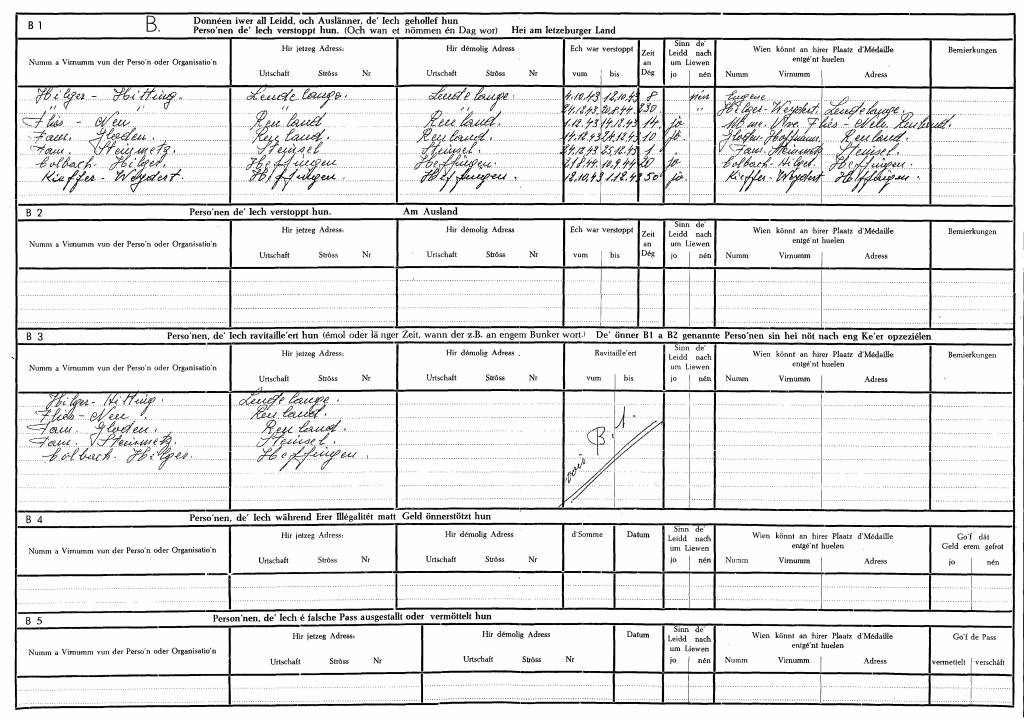 B 1 B. Donnéen iwer all Leidd, och Auslänner, de' Iech gehollef hun
Perso'nen de' Iech verstoppt hun. (Och wan et nömmen én Dag wor) Hei am letzeburger Land
Numm a Virnumm vun der Perso'n oder Organisatio'n
Hir jetzeg Adress:
Urtschaft Ströss Nr
Hir démolig Adress
Urtschaft Ströss Nr
Ech war verstoppt
vum bis
Zeit an Dég
Sinn de' Leidd nach um Liewen
jo nén
Wien könnt an hirer Plaatz d'Médaille entgé'nt huelen
Numm Virnumm Adress
Bemierkungen
Hilger - Hitting. Lendelange. Lendelange. 4.10.43 12.10.43 8 nén Eugene
" " " " 24.12.43 20.8.44 230 " Hilger-Weydert. Lendelange.
Flies - Neu Reuland Reuland. 1.12.43 14.12.43 14 jo Mme. Vve. Flies - Neu. Reuland.
Fam. Gloden. Reuland. Reuland. 14.12.43 24.12.43 10 jo. Gloden-Hoffmann Reuland.
Fam. Steinmetz. Steinsel Steinsel. 24.12.43 25.12.43 1 Fam. Steinmetz Steinsel
Colbach - Hilger. Heffingen Heffingen. 21.8.44. 10.9.44 20 jo Colbach - Hilger. Heffingen.
Kieffer - Weydert. Heffingen Heffingen. 12.10.43 1.12.43 50 jo. Kieffer - Weydert Heffingen.
B 2 Perso'nen de' Iech verstoppt hun. Am Ausland
Numm a Virnumm vun der Perso'n oder Organisatio'n
Hir jetzeg Adress:
Urtschaft Ströss Nr
Hir démolig Adress
Urtschaft Ströss Nr
Ech war verstoppt
vum bis
Zeit an Dég
Sinn de' Leidd nach um Liewen
jo nén
Wien könnt an hirer Plaatz d'Médaille entgé'nt huelen
Numm Virnumm Adress
Bemierkungen
B 3 Perso'nen, de' Iech ravitaille'ert hun (émol oder länger Zeit, wann der z.B. an engem Bunker wort.) De' önner B1 a B2 genannte Perso'nen sin hei nöt nach eng Ke'er opzeziélen
Numm a Virnumm vun der Perso'n oder Organisatio'n
Hir jetzeg Adress:
Urtschaft Ströss Nr
Hir démolig Adress
Urtschaft Ströss Nr
Ravitaille'ert
vum bis
Sinn de' Leidd nach um Liewen
jo nén
Wien könnt an hirer Plaatz d'Médaille entgé'nt huelen
Numm Virnumm Adress
Bemierkungen
Hilger - Hitting. Lendelange.
Flies - Neu. Reuland.
Fam. Gloden. Reuland.
Fam. Steinmetz. Steinsel.
Colbach - Hilger. Heffingen.
voir B.1.
B 4 Perso'nen, de' Iech während Erer Illégalitét matt Geld önnerstötzt hun
Numm a Virnumm vun der Perso'n oder Organisatio'n
Hir jetzeg Adress:
Urtschaft Ströss Nr
Hir démolig Adress
Urtschaft Ströss Nr
d'Somme
Datum
Sinn de' Leidd nach um Liewen
jo nén
Wien könnt an hirer Plaatz d'Médaille entgé'nt huelen
Numm Virnumm Adress
Go'f dât Geld erem gefrot
jo nén
B 5 Person'nen, de' Iech é falsche Pass ausgestallt oder vermöttelt hun
Numm a Virnumm vun der Perso'n oder Organisatio'n
Hir jetzeg Adress:
Urtschaft Ströss Nr
Hir démolig Adress
Urtschaft Ströss Nr
Datum
Sinn de' Leidd nach um Liewen
jo nén
Wien könnt an hirer Plaatz d'Médaille entgé'nt huelen
Numm Virnumm Adress
Go'f de Pass
vermettelt verschâft